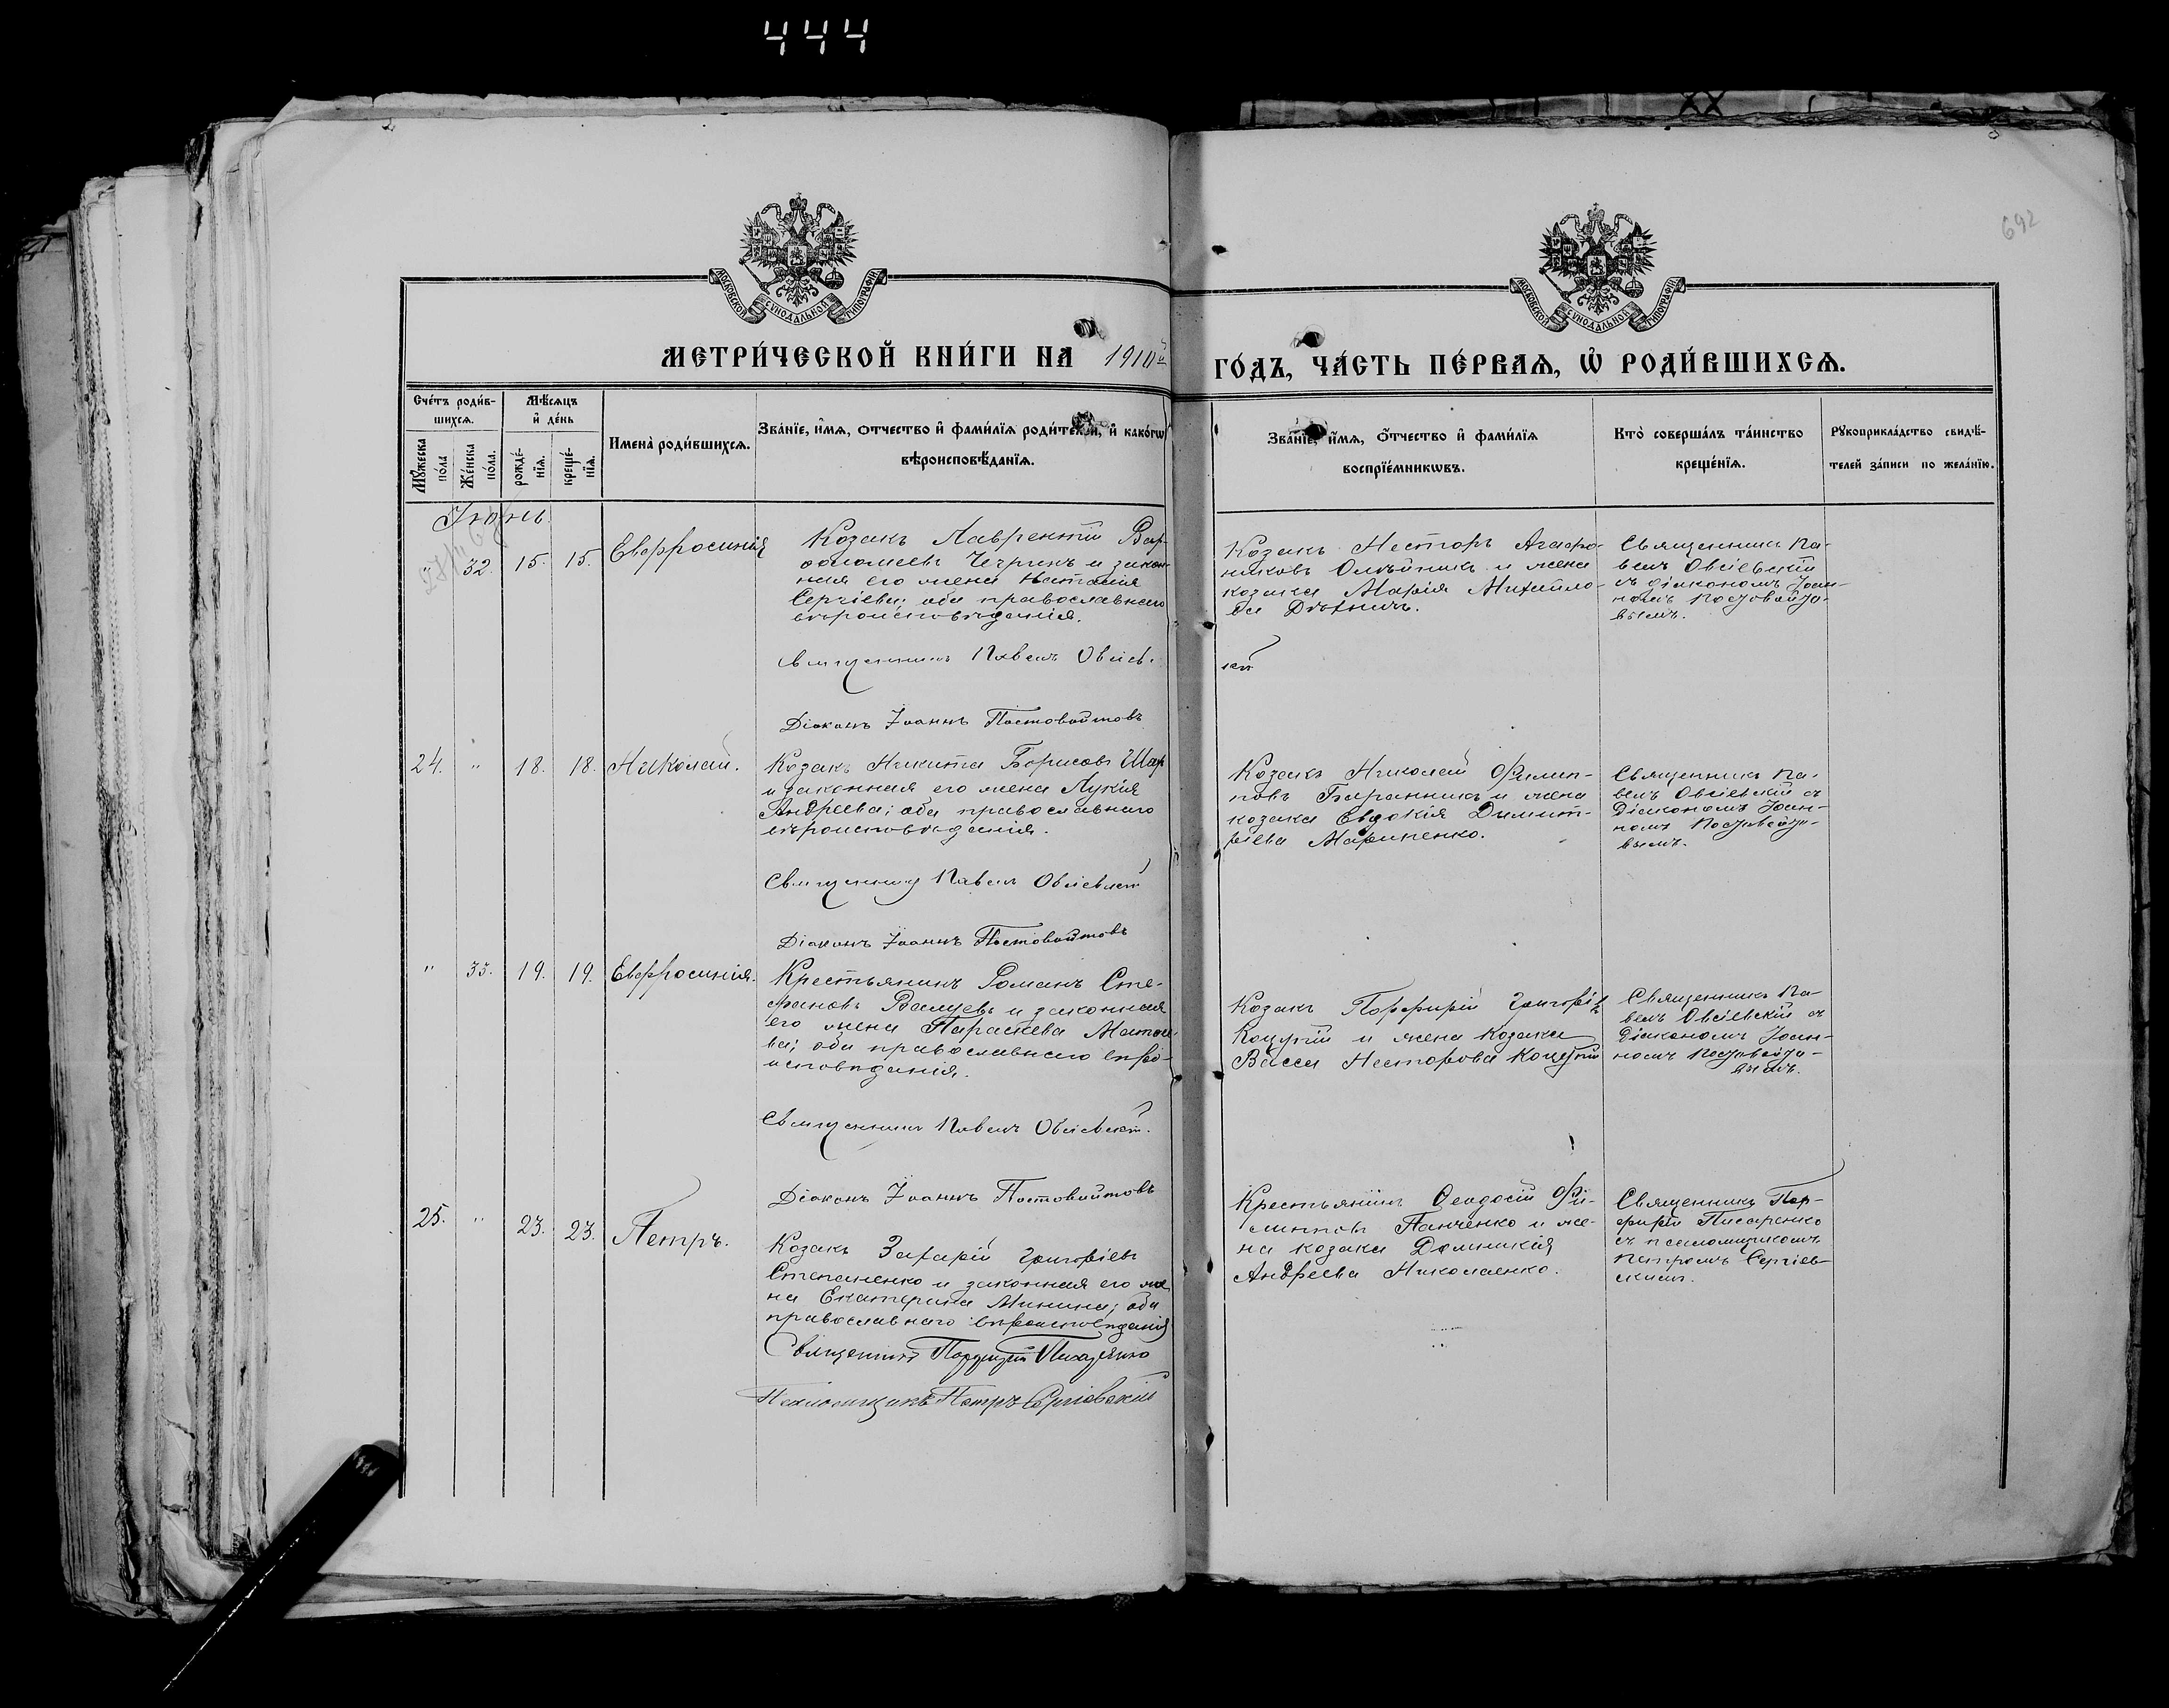 444
692
МОСКОВСКОЙ СУНОДАЛЬНОЙ ТИПОГРАФІИ
МОСКОВСКОЙ СУНОДАЛЬНОЙ ТИПОГРАФІИ
МЕТРИ́ЧЕСКОЙ КНИ́ГИ НА 1910й ГО́ДЪ, ЧА́СТЬ ПЕ́РВАѦ, Ѡ҆ РОДИ́ВШИХСѦ.
Сче́тъ роди́в-
шихсѧ.
Мꙋжеска по́ла
Же́нска по́ла.
Мѣ́сѧцъ
и҆ де́нь
рожде́-
нїѧ.
креще́-
нїѧ.
Имена̀ роди́вшихсѧ.
Зва́нїе, и҆́мѧ, ѻтчество и҆ фами́лїѧ роди́телей, и҆ како́гѡ
вѣроисповѣ́данїѧ.
Зва́нїе, и҆́мѧ, ѻ҆тчество и҆ фами́лїѧ
воспрїе́мникѡвъ.
Кто̀ соверша́лъ та́инство
креще́нїѧ.
Рꙋкоприкла́дство свидѣ́-
телей за́писи по жела́нїю.
Іюнь
" 32. 15. 15. Евфросинія
Козакъ Лаврентій Вар-
ѳоломеевъ Чернякъ и закон-
ная его жена Наталія
Сергіева; оба православнаго
вѣроисповѣданія.
Священникъ Павелъ Овсіев-
скій
Діаконъ Іоаннъ Постовойтовъ
Козакъ Несторъ Агафо-
никовъ Олѣйникъ и жена
козака Марія Михайло-
ва
Священникъ Па-
велъ Овсіевскій
съ діакономъ Іоан-
номъ Постовойто-
вымъ.
24. " 18. 18. Николай.
Козакъ Никита Борисовъ Шар
и законная его жена Лукія
Андреева; оба православнаго
вѣроисповѣданія.
Священникъ Павелъ Овсіевскій
Діаконъ Іоаннъ Постовойтовъ
Козакъ Николай Филип-
повъ Баранникъ и жена
козака Евдокія Димит-
ріева Мариненко.
Священникъ Па-
велъ Овсіевскій съ
Діакономъ Іоан-
номъ Постовойто-
вымъ.
" 33. 19. 19. Евфросинія.
Крестьянинъ Романъ Сте-
фановъ и законная
его жена Параскева
ва; оба православнаго вѣро-
исповѣданія.
Священникъ Павелъ Овсіевскій.
Діаконъ Іоаннъ Постовойтовъ
Козакъ Порфирій Григорьев
Коцупій и жена козака
Васса Несторова Коцупій
Священникъ Па-
велъ Овсіевскій съ
Діакономъ Іоан-
номъ Постовойто-
вымъ.
25. " 23. 23. Петръ.
Козакъ Захарій Григорьевъ
Степаненко и законная его же
на Екатерина Минина; оба
православнаго вѣроисповѣданія
Священникъ Порфирій Писаренко
Псаломщикъ Петръ Сергіевскій
Крестьянинъ Ѳеодосій Фи-
липповъ Панченко и же-
на козака Домникія
Андреева Николаенко.
Священникъ Пор-
фирій Писаренко
съ псаломщикомъ
Петромъ Сергіев-
скимъ.